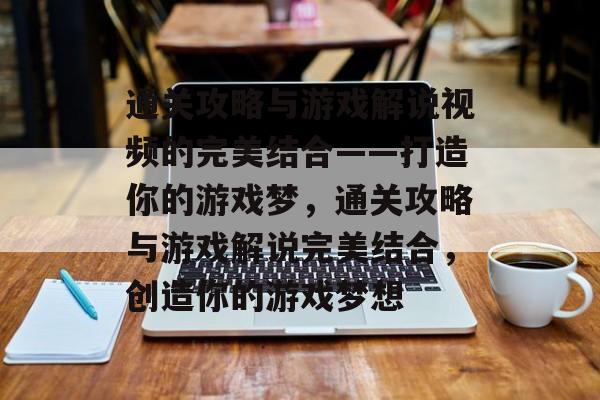 通关攻略与游戏解说视
频的完美结合——打造
你的游戏梦，通关攻略
与游戏解说完美结合，
创造你的游戏梦想